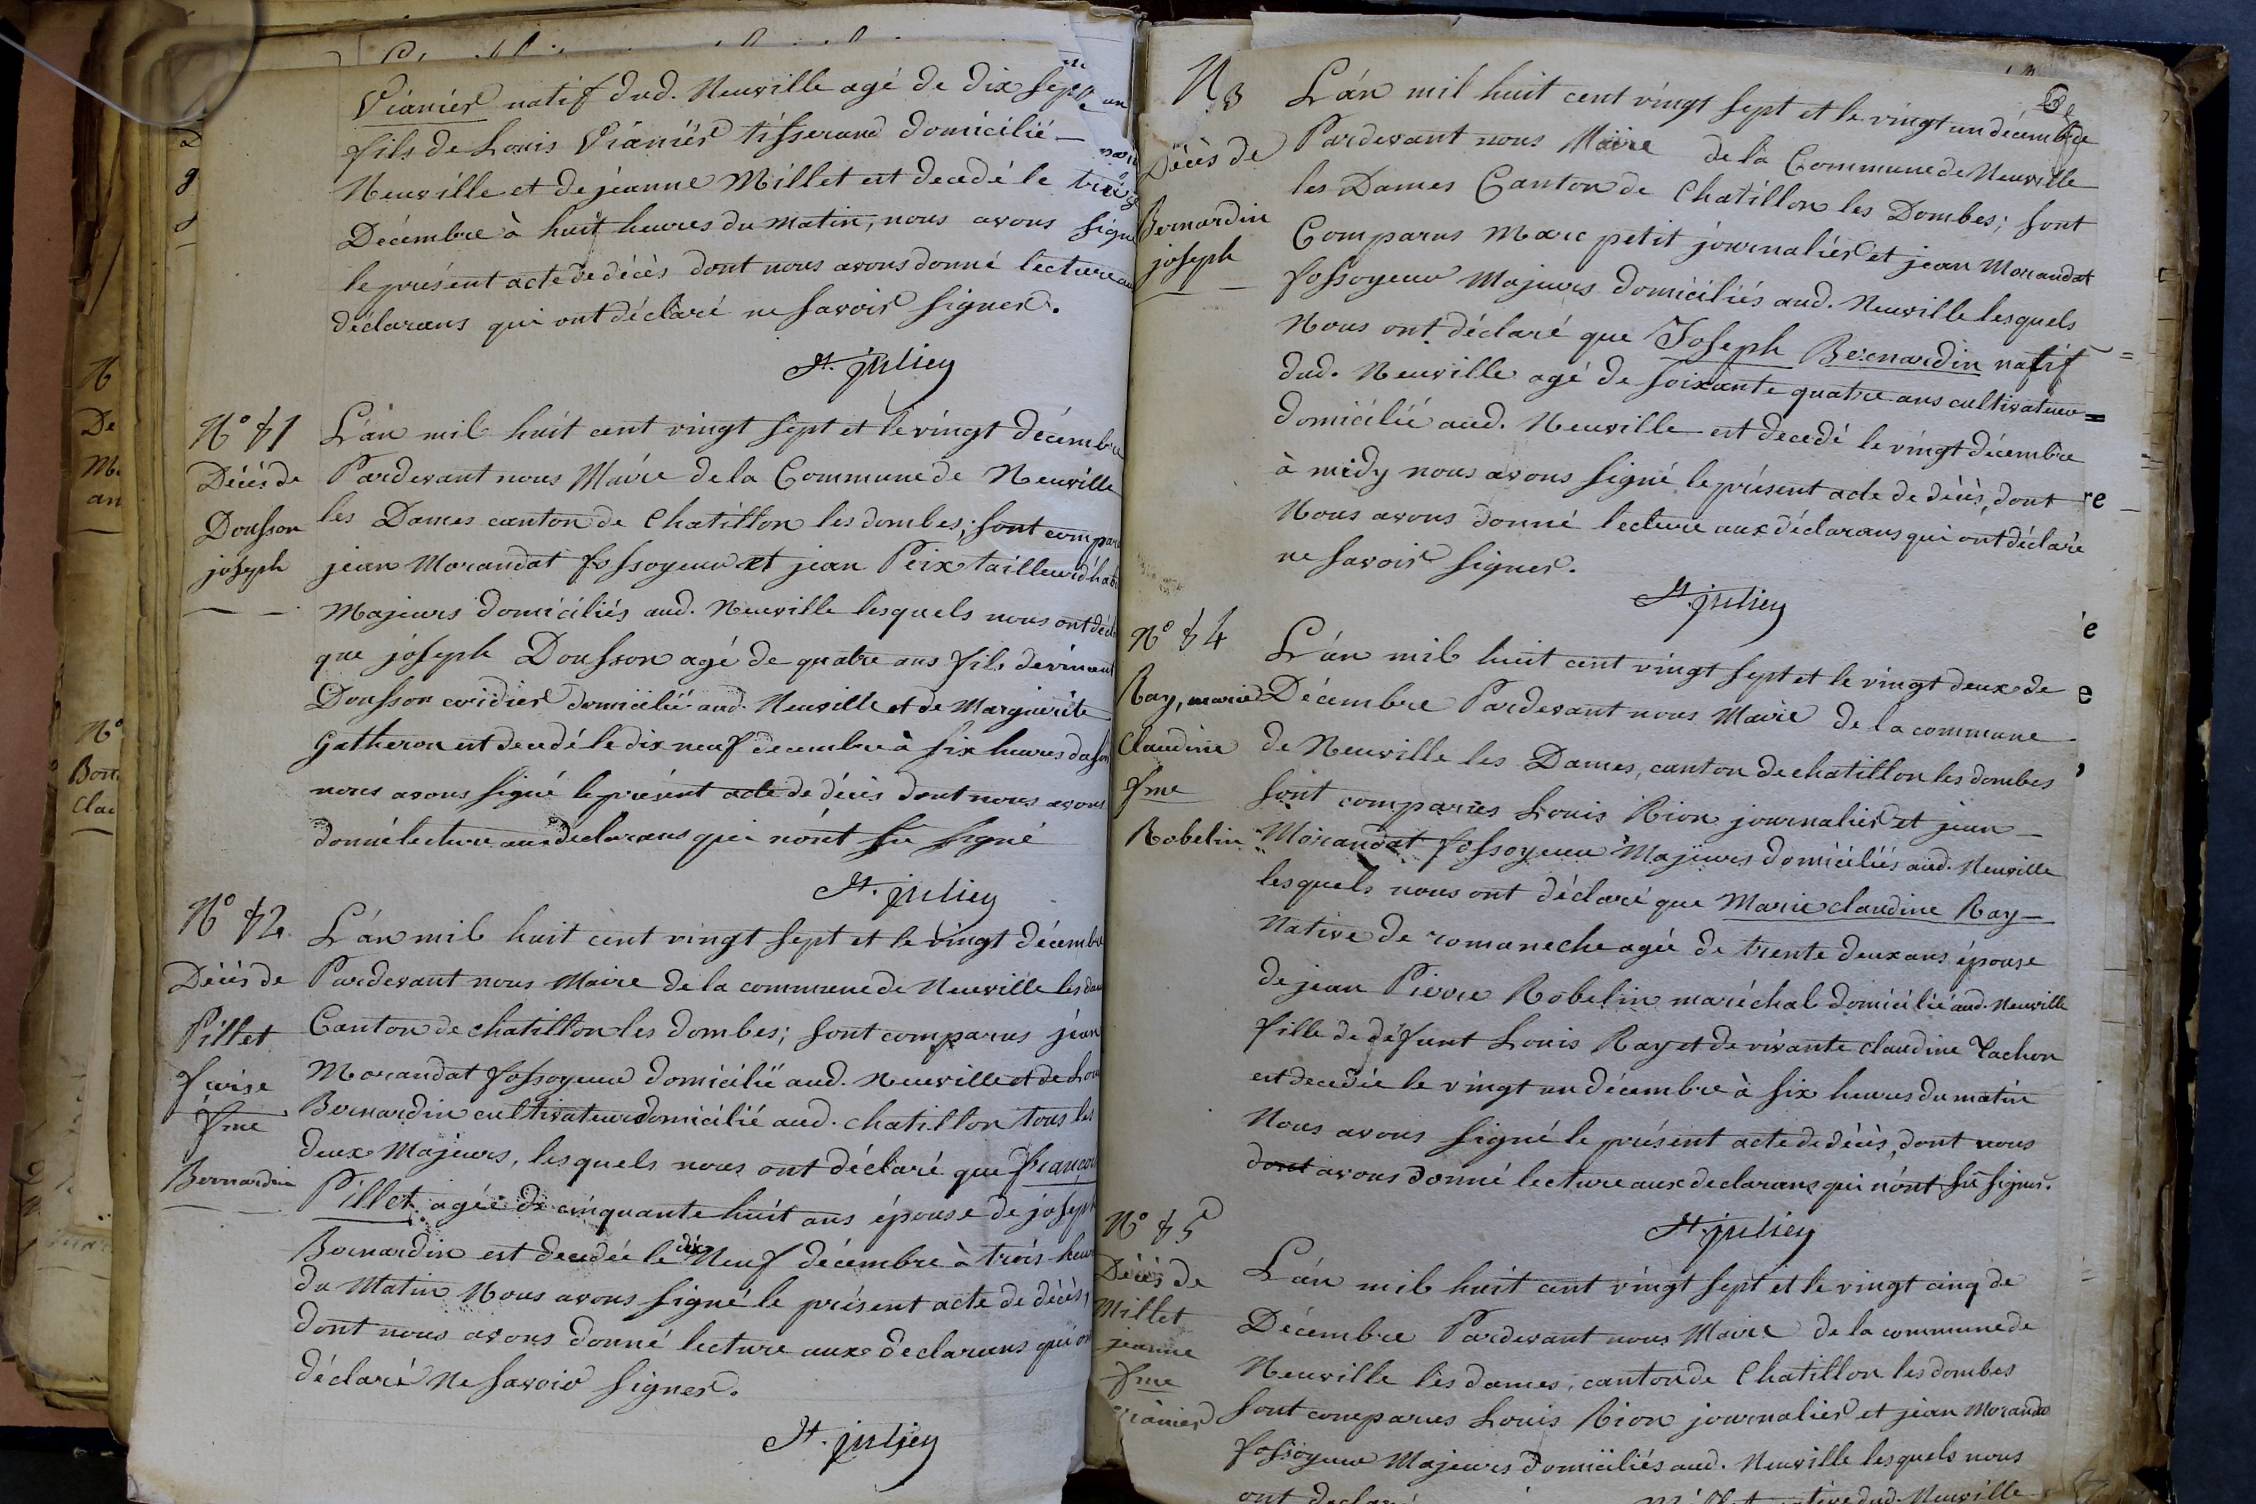 Vianier natif dud. Neuville agé de dix sept an
fils de Louis Vianier tisserand domicilié
Neuville et de jeanne Millet est decedé le treize
Décembre à huit heures du matin, nous avons signé
le présent acte de décès dont nous avons donné lecture au
déclarans qui ont déclaré ne savoir signer.
St. julien
N° 51
Décès de
Dousson
joseph
L'án mil huit cent vingt sept et le vingt décembre
Pardevant nous Maire de la Commune de Neuville
les Dames canton de Chatillon les dombes; sont compar
jean Morandat fossoyeur et jean Peix tailleur d'hab
Majeurs domiciliés aud. Neuville lesquels nous ont décl
que joseph Dousson agé de quatre ans fils de vincent
Dousson domicilié aud. Neuville et de Marguerite
Gatheron est decedé le dix neuf decembre à six heures du soir
nous avons signé le présent acte de décès dont nous avons
donné lecture aux déclarans qui n'ónt su signé
St. julien
N° 52
Décès de
Pillet
fcoise
fme
Bernardin
L'án mil huit cent vingt sept et le vingt décembre
Pardevant nous Maire de la commune de Neuville les dam
Canton de chatillon les dombes; sont comparus jean
Morandat fossoyeur domicilié aud. Neuville et de Lou
Bernardin cultivateur domicilié aud. chatillon tous les
deux Majeurs, lesquels nous ont déclaré que francoi
Pillet agée de cinquante huit ans épouse de joseph
Bernardin est decedée le dix Neuf décembre à trois heur
du Matin Nous avons signé le présent acte de décès,
dont nous avons donné lecture aux declarans qui on
déclaré Ne savoir signer.
St. julien
N 3
Décès de
Bernardin
joseph
L'án mil huit cent vingt sept et le vingt un décembre
Pardevant nous Maire de la Commune de Neuville
les Dames Canton de Chatillon les Dombes; sont
Comparus Marc petit journalier et jean Morandat
fossoyeur Majeurs domiciliés aud. Neuville lesquels
Nous ont déclaré que Joseph Bernardin natif
dud. Neuville agé de soixante quatre ans cultivateur
domicilié aud. Neuville est decedé le vingt décembre
à midy nous avons signé le présent acte de décès, dont
Nous avons donné lecture aux déclarans qui ont déclaré
ne savoir signer.
St. julien
N° 54
Ray, marie
Claudine
fme
Robelin
L'án mil huit cent vingt sept et le vingt deux de
Décembre Pardevant nous Maire de la commune
de Neuville les Dames, canton de chatillon les dombes
sont comparus Louis Rion journalier et jean
Morandat fossoyeur Majeurs domiciliés aud. Neuville
lesquels nous ont déclaré que Marie claudine Ray
Native de romaneche agée de trente deux ans épouse
de jean Pierre Robelin maréchal domicilié aud. Neuville
fille de défunt Louis Ray et de vivante claudine Tachon
est decedée le vingt un décembre à six heures du matin
Nous avons signé le présent acte de décès, dont nous
dont avons donné lecture aux declarans qui n'ónt su signer.
St. julien
N° 55
Décès de
Millet
jeanne
fme
Vianier
L'án mil huit cent vingt sept et le vingt cinq de
Décembre Pardevant nous Maire de la commune de
Neuville les dames, canton de Chatillon les dombes
sont comparus Louis Rion journalier et jean Moranda
fossoyeur Majeurs domiciliés aud. Neuville lesquels nous
ont declaré Millet native dud. Neuville